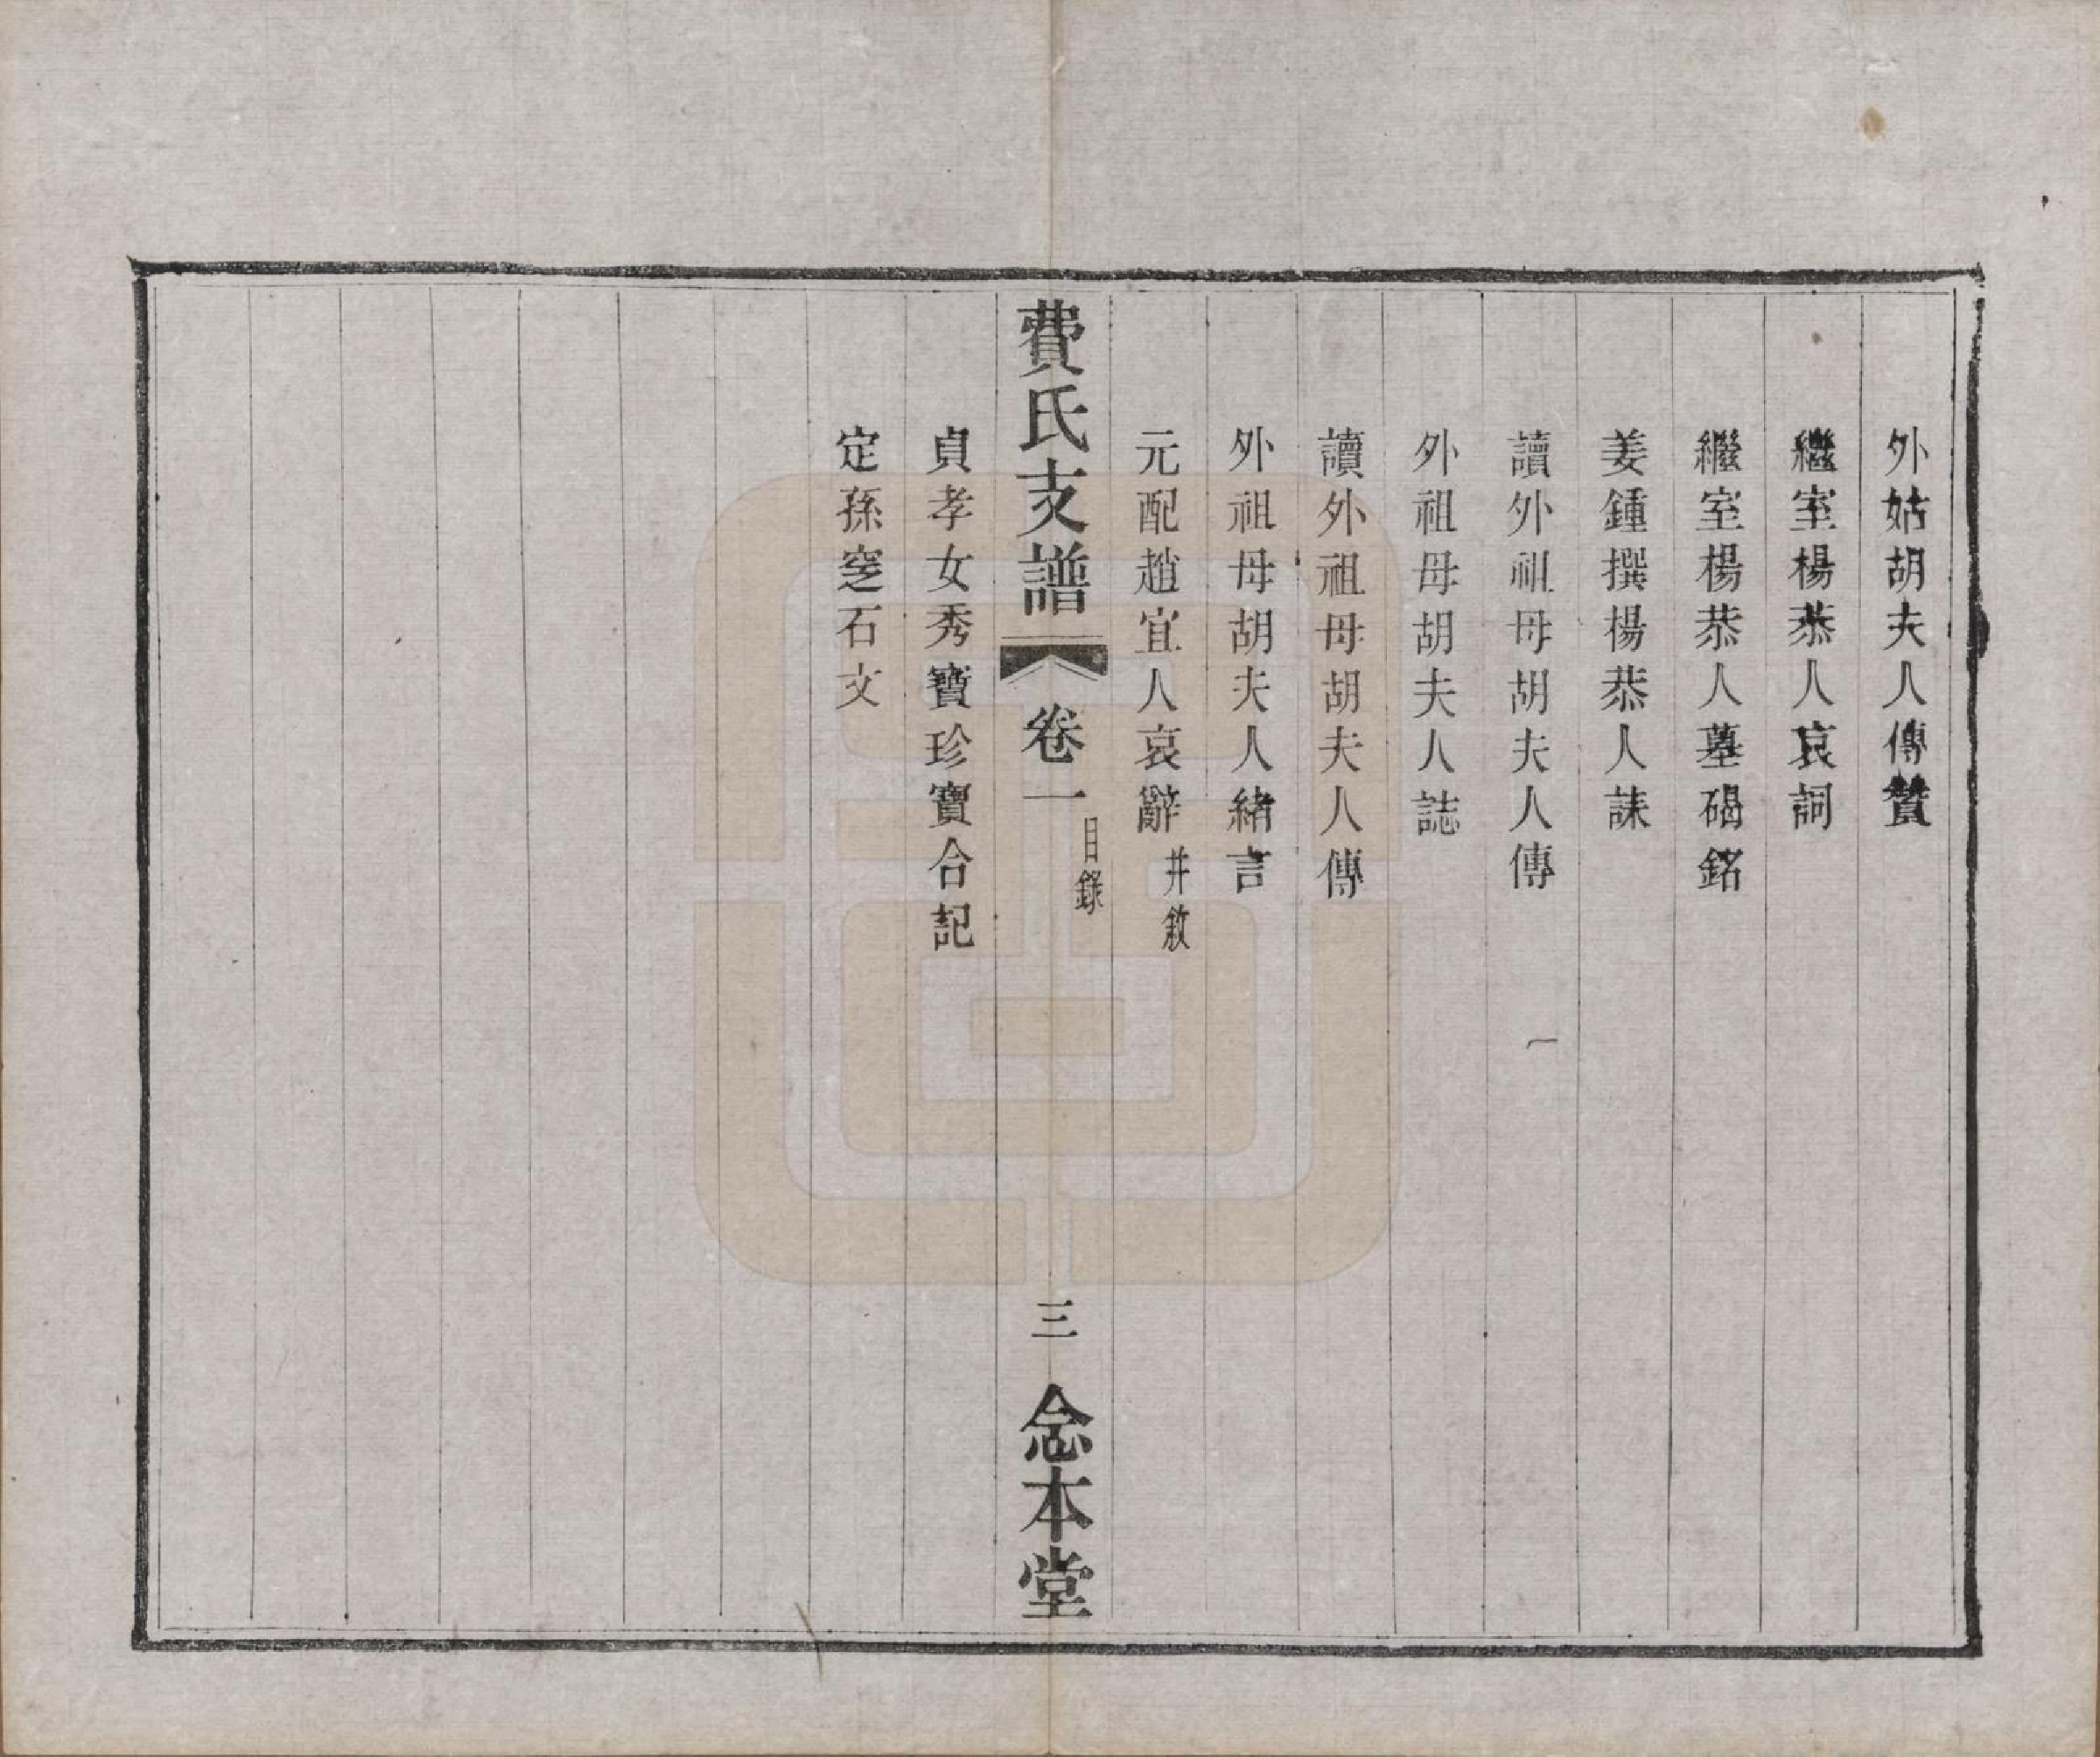 外姑胡夫人傳贊
繼室楊恭人哀詞
繼室楊恭人墓碣銘
姜鍾撰楊恭人誄
讀外祖母胡夫人傳
外祖母胡夫人誌
讀外祖母胡夫人傳
外祖母胡夫人緒言
元配趙宜人哀辭 并敘
費氏支譜 卷一 目錄 三 念本堂
貞孝女秀寶珍寶合記
定孫窆石文